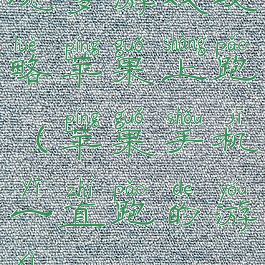 lüè píng guǒ shàng pǎo
略苹果上跑
píng guǒ shǒu jī
（苹果手机
yī zhí pǎo de yóu
一直跑的游